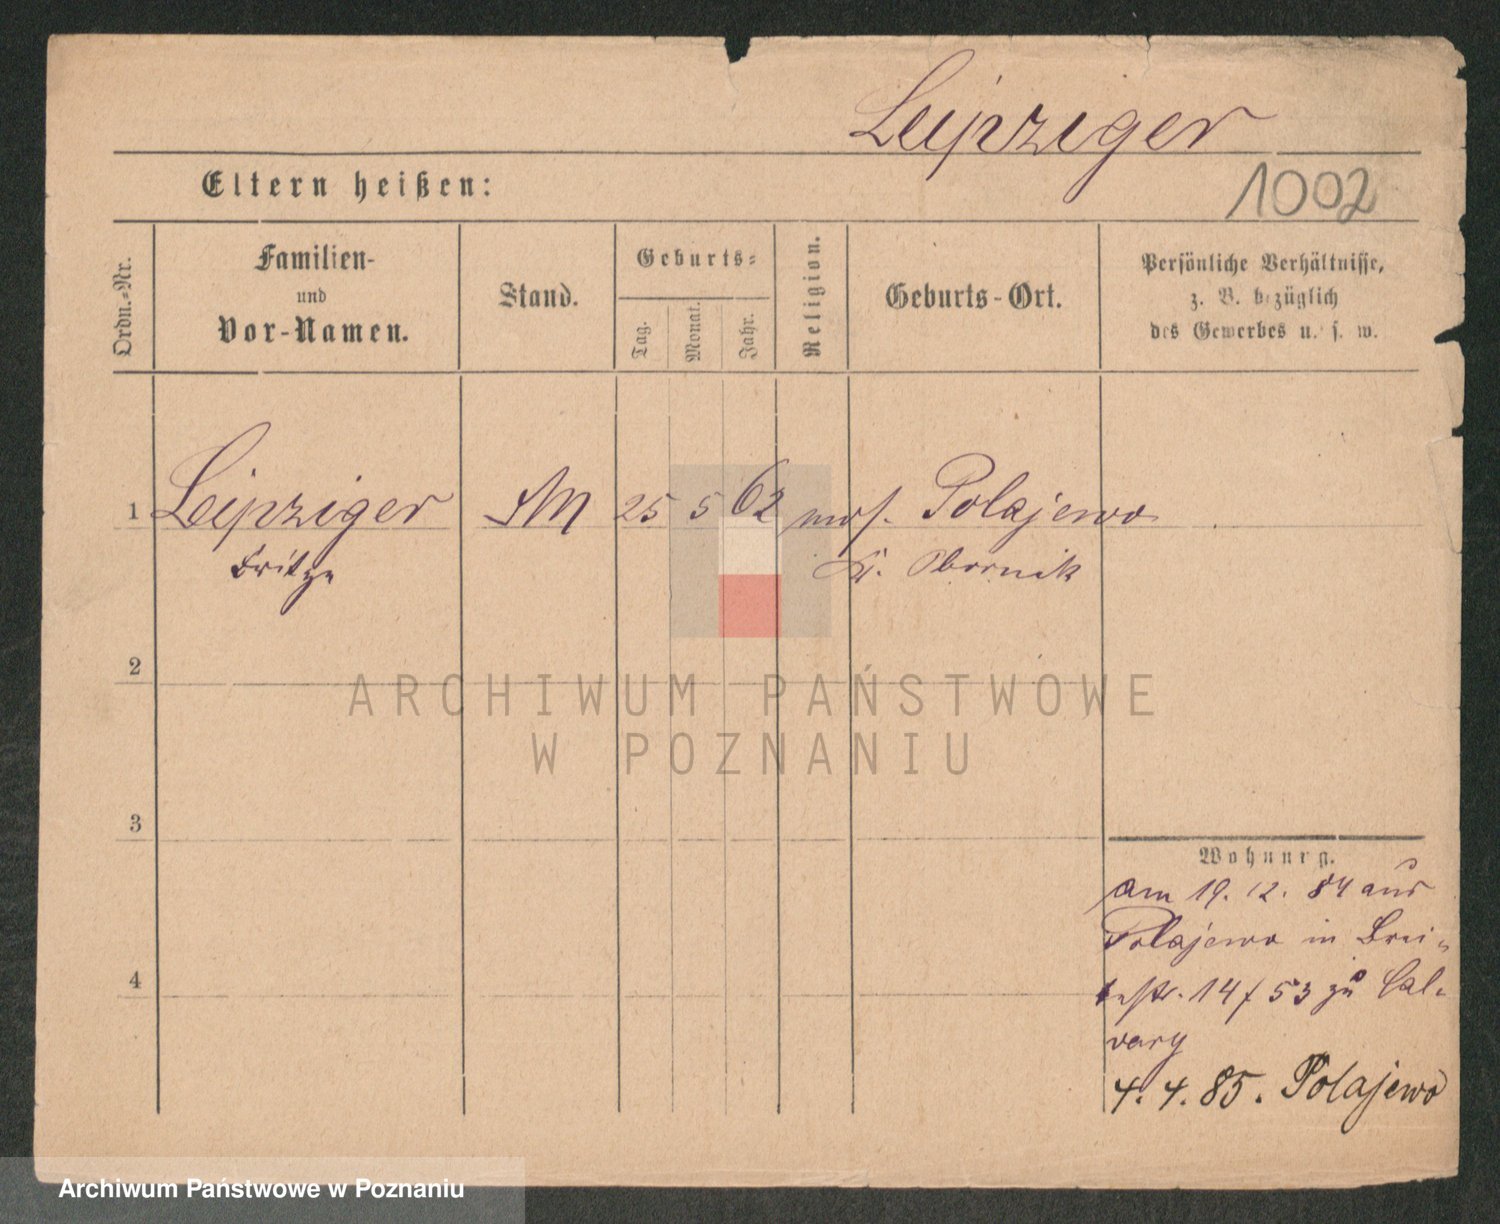 Leipziger
Eltern heißen:
1002
Ordn.-Nr.
Familien-
und
Vor-Namen.
Stand.
Geburts-
Tag.
Monat.
Jahr.
Religion.
Geburts-Ort.
Persönliche Verhältnisse,
z. B. bezüglich
des Gewerbes u. s. w.
1 Leipziger 25 5 62 mos. Polajewo
Fritze Kr. Obornik
2
ARCHIWUM PAŃSTWOWE
W POZNANIU
3
Wohnung.
am 19. 12. 84 aus
Polajewo in Brei-
testr. 14 / 53 zu Cal-
vary
4
4. 4. 85. Polajewo
Archiwum Państwowe w Poznaniu